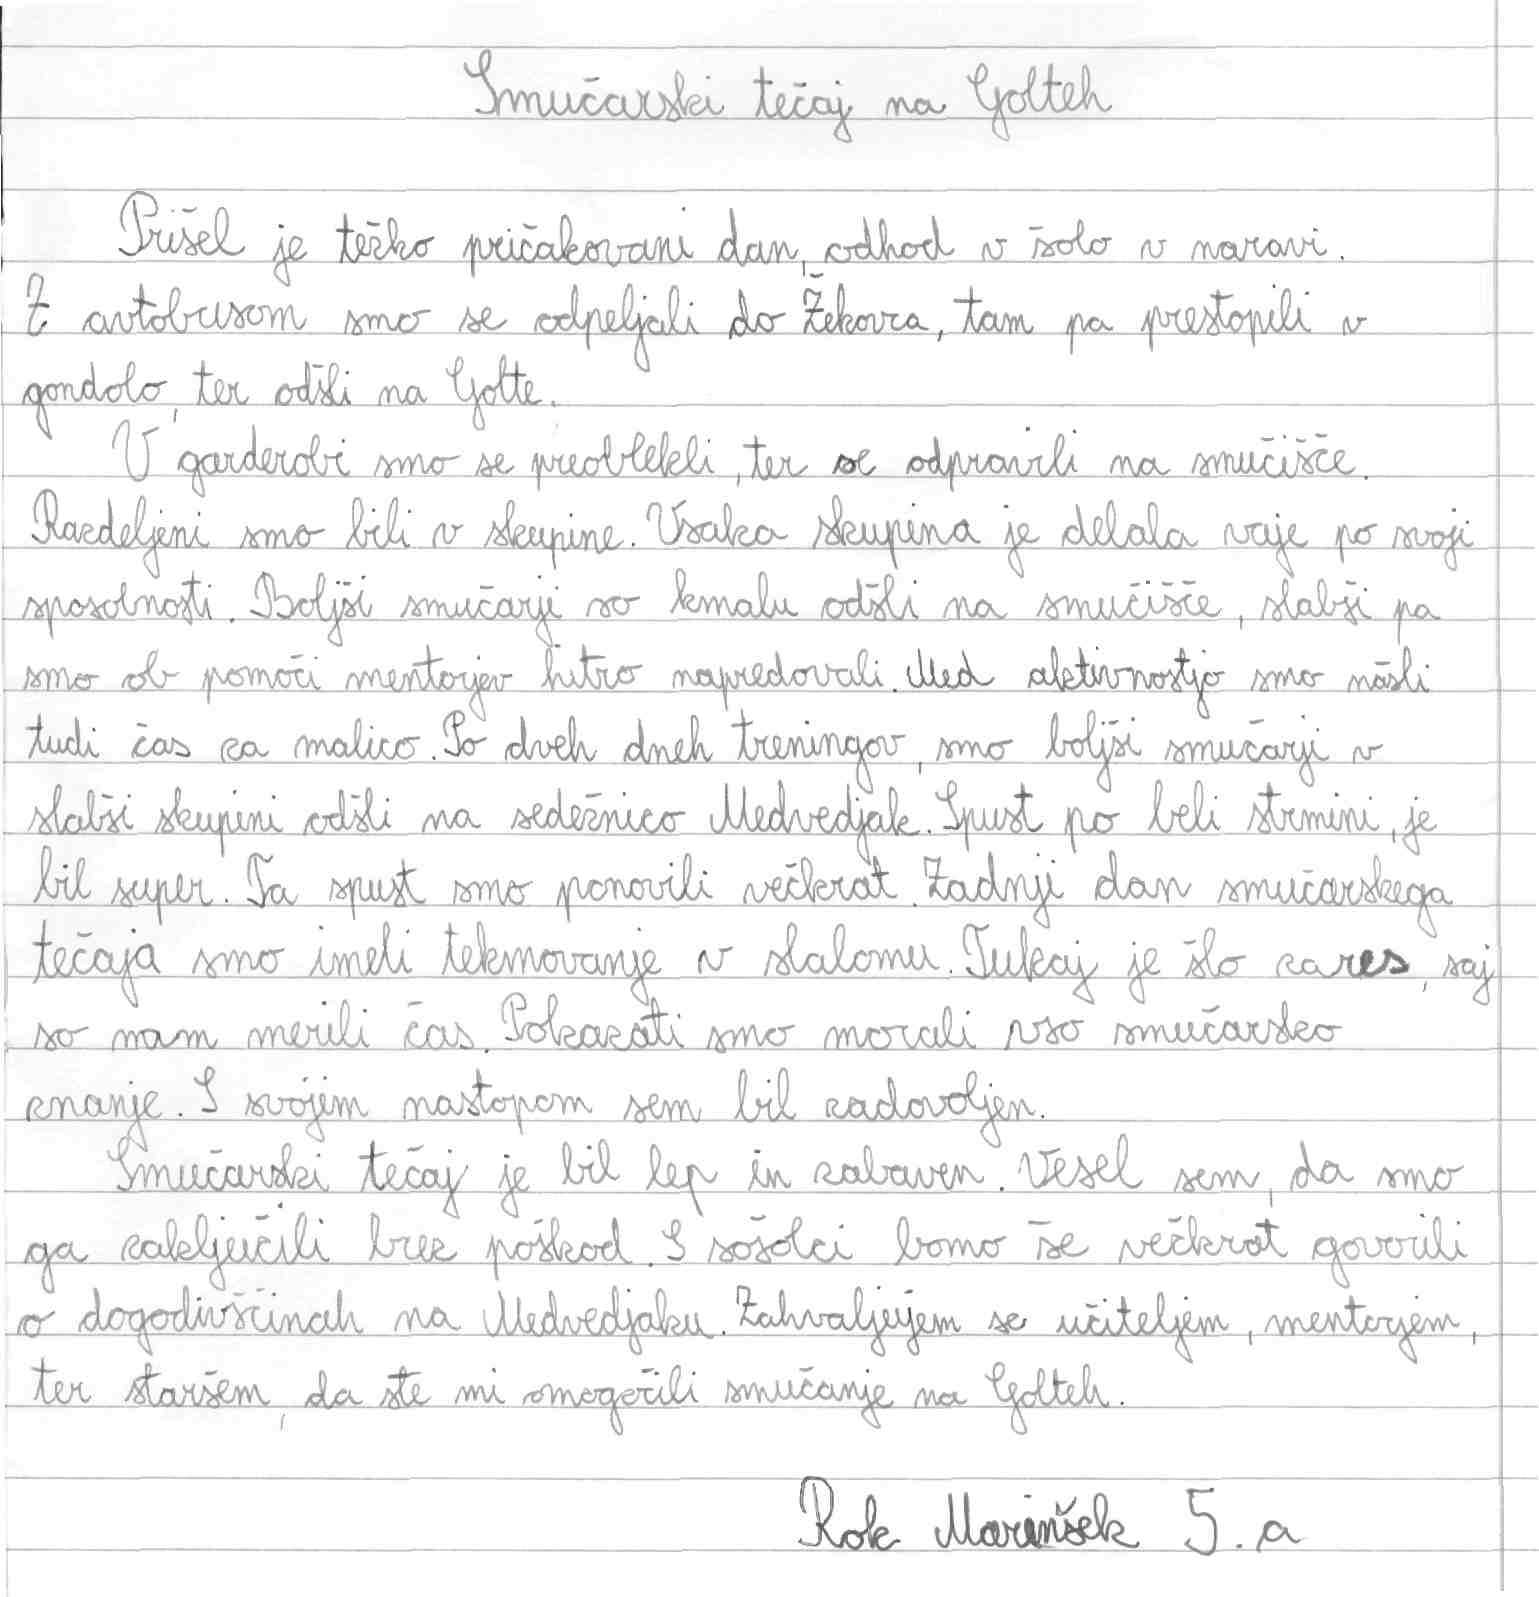 Smučarski tečaj na Golteh
Prišel je težko pričakovani dan, odhod v šolo v naravi.
Z avtobusom smo se odpeljali do Žekovca, tam pa prestopili v
gondolo, ter odšli na Golte.
V garderobi smo se preoblekli, ter se odpravili na smučišče.
Razdeljeni smo bili v skupine. Vsaka skupina je delala vaje po svoji
sposobnosti. Boljši smučarji so kmalu odšli na smučišče, slabši pa
smo ob pomoči mentorjev hitro napredovali. Med aktivnostjo smo našli
tudi čas za malico. Po dveh dneh treningov, smo boljši smučarji v
slabši skupini odšli na sedežnico Medvedjak. Spust po beli strmini, je
bil super. Ta spust smo ponovili večkrat. Zadnji dan smučarskega
tečaja smo imeli tekmovanje v slalomu. Tukaj je šlo zares, saj
so nam merili čas. Pokazati smo morali vso smučarsko
znanje. S svojim nastopom sem bil zadovoljen.
Smučarski tečaj je bil lep in zabaven. Vesel sem, da smo
ga zaključili brez poškod. S sošolci bomo še večkrat govorili
o dogodivščinah na Medvedjaku. Zahvaljujem se učiteljem, mentorjem,
ter staršem, da ste mi omogočili smučanje na Golteh.
Rok Marinšek 5. a